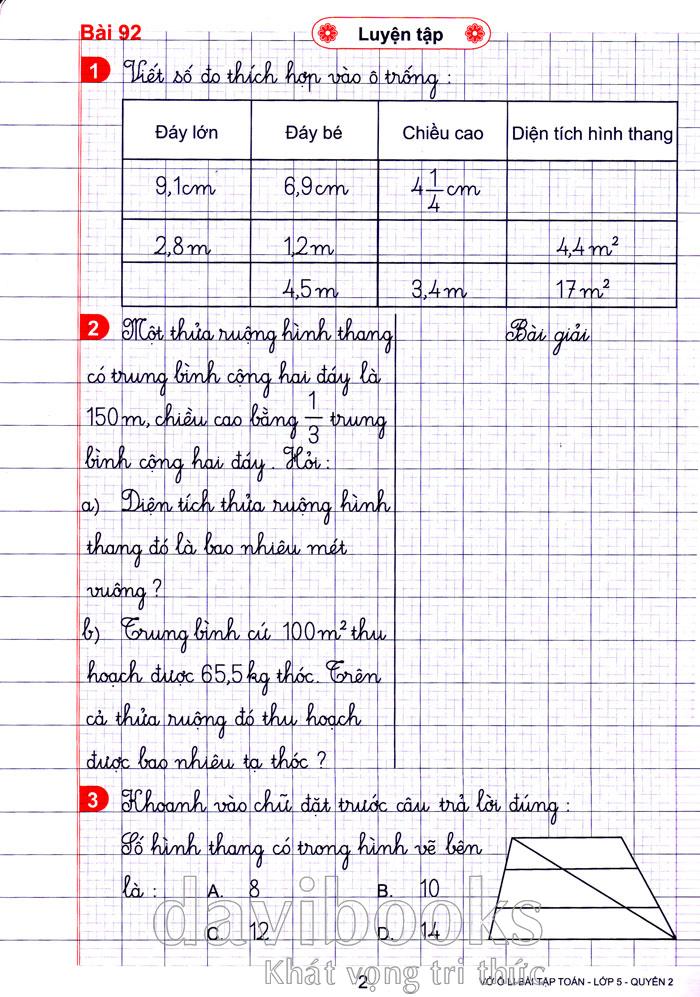 Bài 92
Luyện tập
1 Viết số đo thích hợp vào ô trống :
Đáy lớn Đáy bé Chiều cao Diện tích hình thang
9,1cm 6,9cm 4 1/4 cm
2,8m 1,2m 4,4m²
4,5m 3,4m 17m²
2 Một thửa ruộng hình thang
có trung bình cộng hai đáy là
150m, chiều cao bằng 1/3 trung
bình cộng hai đáy. Hỏi :
a) Diện tích thửa ruộng hình
thang đó là bao nhiêu mét
vuông ?
b) Trung bình cứ 100m² thu
hoạch được 65,5kg thóc. Trên
cả thửa ruộng đó thu hoạch
được bao nhiêu tạ thóc ?
Bài giải
3 Khoanh vào chữ đặt trước câu trả lời đúng :
Số hình thang có trong hình vẽ bên
là : A. 8 B. 10
C. 12 D. 14
davibooks
Khát vọng tri thức
2
VỞ Ô LI BÀI TẬP TOÁN - LỚP 5 - QUYỂN 2